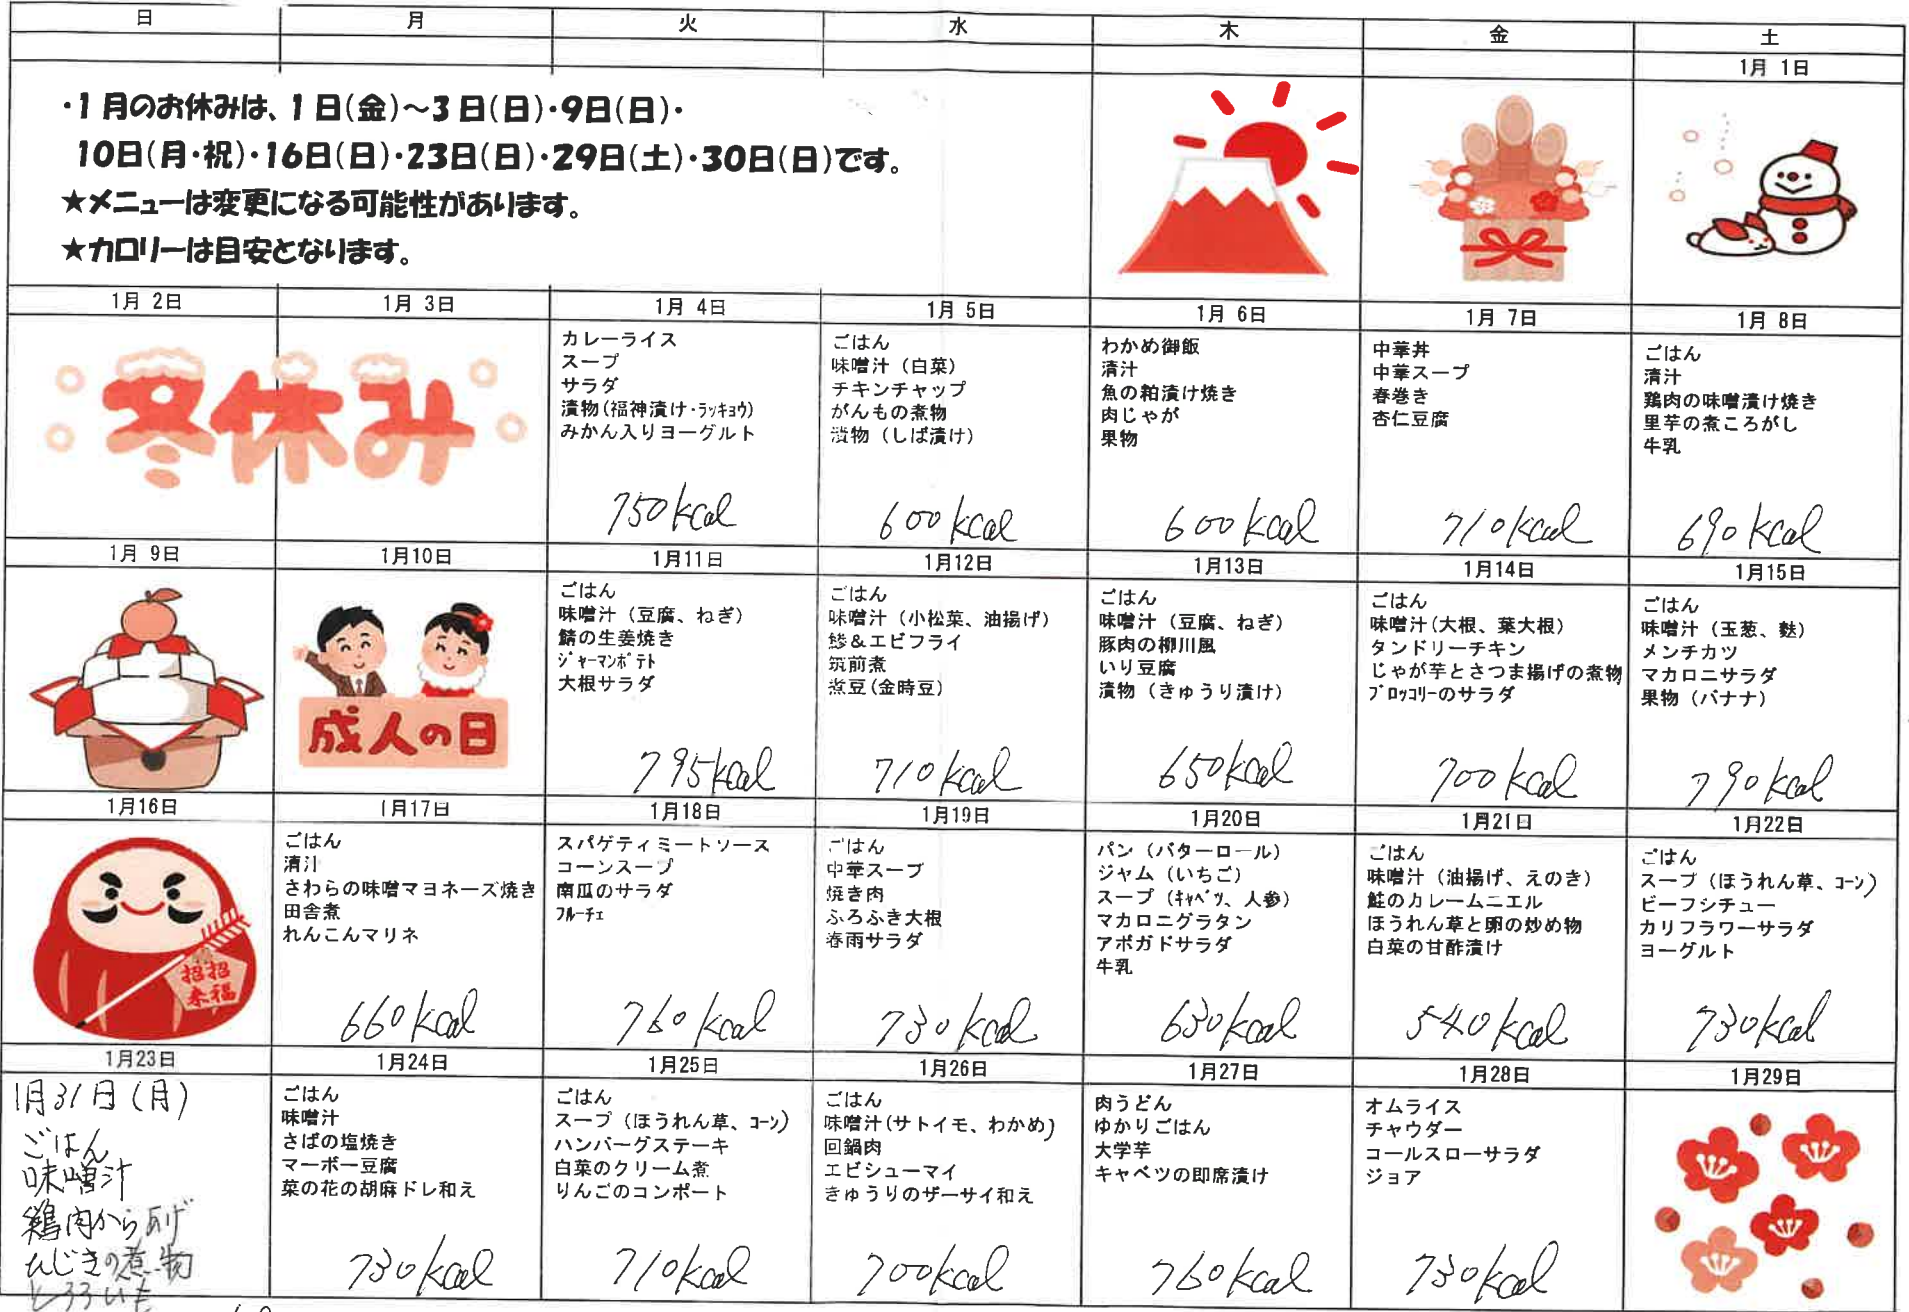 日 月 火 水 木 金 土
1月 1日
・1月のお休みは、1日(金)～3日(日)・9日(日)・
10日(月・祝)・16日(日)・23日(日)・29日(土)・30日(日)です。
★メニューは変更になる可能性があります。
★カロリーは目安となります。
1月 2日
1月 3日
冬休み
1月 4日
カレーライス
スープ
サラダ
漬物(福神漬け・ラッキョウ)
みかん入りヨーグルト
750kcal
1月 5日
ごはん
味噌汁（白菜）
チキンチャップ
がんもの煮物
漬物（しば漬け）
600kcal
1月 6日
わかめ御飯
清汁
魚の粕漬け焼き
肉じゃが
果物
600kcal
1月 7日
中華丼
中華スープ
春巻き
杏仁豆腐
710kcal
1月 8日
ごはん
清汁
鶏肉の味噌漬け焼き
里芋の煮ころがし
牛乳
690kcal
1月 9日
1月10日
成人の日
1月11日
ごはん
味噌汁（豆腐、ねぎ）
鯖の生姜焼き
ジャーマンポテト
大根サラダ
795kcal
1月12日
ごはん
味噌汁（小松菜、油揚げ）
鯵＆エビフライ
筑前煮
煮豆(金時豆)
710kcal
1月13日
ごはん
味噌汁（豆腐、ねぎ）
豚肉の柳川風
いり豆腐
漬物（きゅうり漬け）
650kcal
1月14日
ごはん
味噌汁(大根、葉大根)
タンドリーチキン
じゃが芋とさつま揚げの煮物
ブロッコリーのサラダ
700kcal
1月15日
ごはん
味噌汁（玉葱、麩）
メンチカツ
マカロニサラダ
果物（バナナ）
790kcal
1月16日
招招
来福
1月17日
ごはん
清汁
さわらの味噌マヨネーズ焼き
田舎煮
れんこんマリネ
660kcal
1月18日
スパゲティミートソース
コーンスープ
南瓜のサラダ
フルーチェ
760kcal
1月19日
ごはん
中華スープ
焼き肉
ふろふき大根
春雨サラダ
730kcal
1月20日
パン（バターロール）
ジャム（いちご）
スープ（キャベツ、人参）
マカロニグラタン
アボガドサラダ
牛乳
630kcal
1月21日
ごはん
味噌汁（油揚げ、えのき）
鮭のカレームニエル
ほうれん草と卵の炒め物
白菜の甘酢漬け
540kcal
1月22日
ごはん
スープ（ほうれん草、コーン）
ビーフシチュー
カリフラワーサラダ
ヨーグルト
730kcal
1月23日
1月31日(月)
ごはん
味噌汁
鶏肉からあげ
ひじきの煮物
1月24日
ごはん
味噌汁
さばの塩焼き
マーボー豆腐
菜の花の胡麻ドレ和え
730kcal
1月25日
ごはん
スープ（ほうれん草、コーン）
ハンバーグステーキ
白菜のクリーム煮
りんごのコンポート
710kcal
1月26日
ごはん
味噌汁(サトイモ、わかめ)
回鍋肉
エビシューマイ
きゅうりのザーサイ和え
700kcal
1月27日
肉うどん
ゆかりごはん
大学芋
キャベツの即席漬け
760kcal
1月28日
オムライス
チャウダー
コールスローサラダ
ジョア
730kcal
1月29日